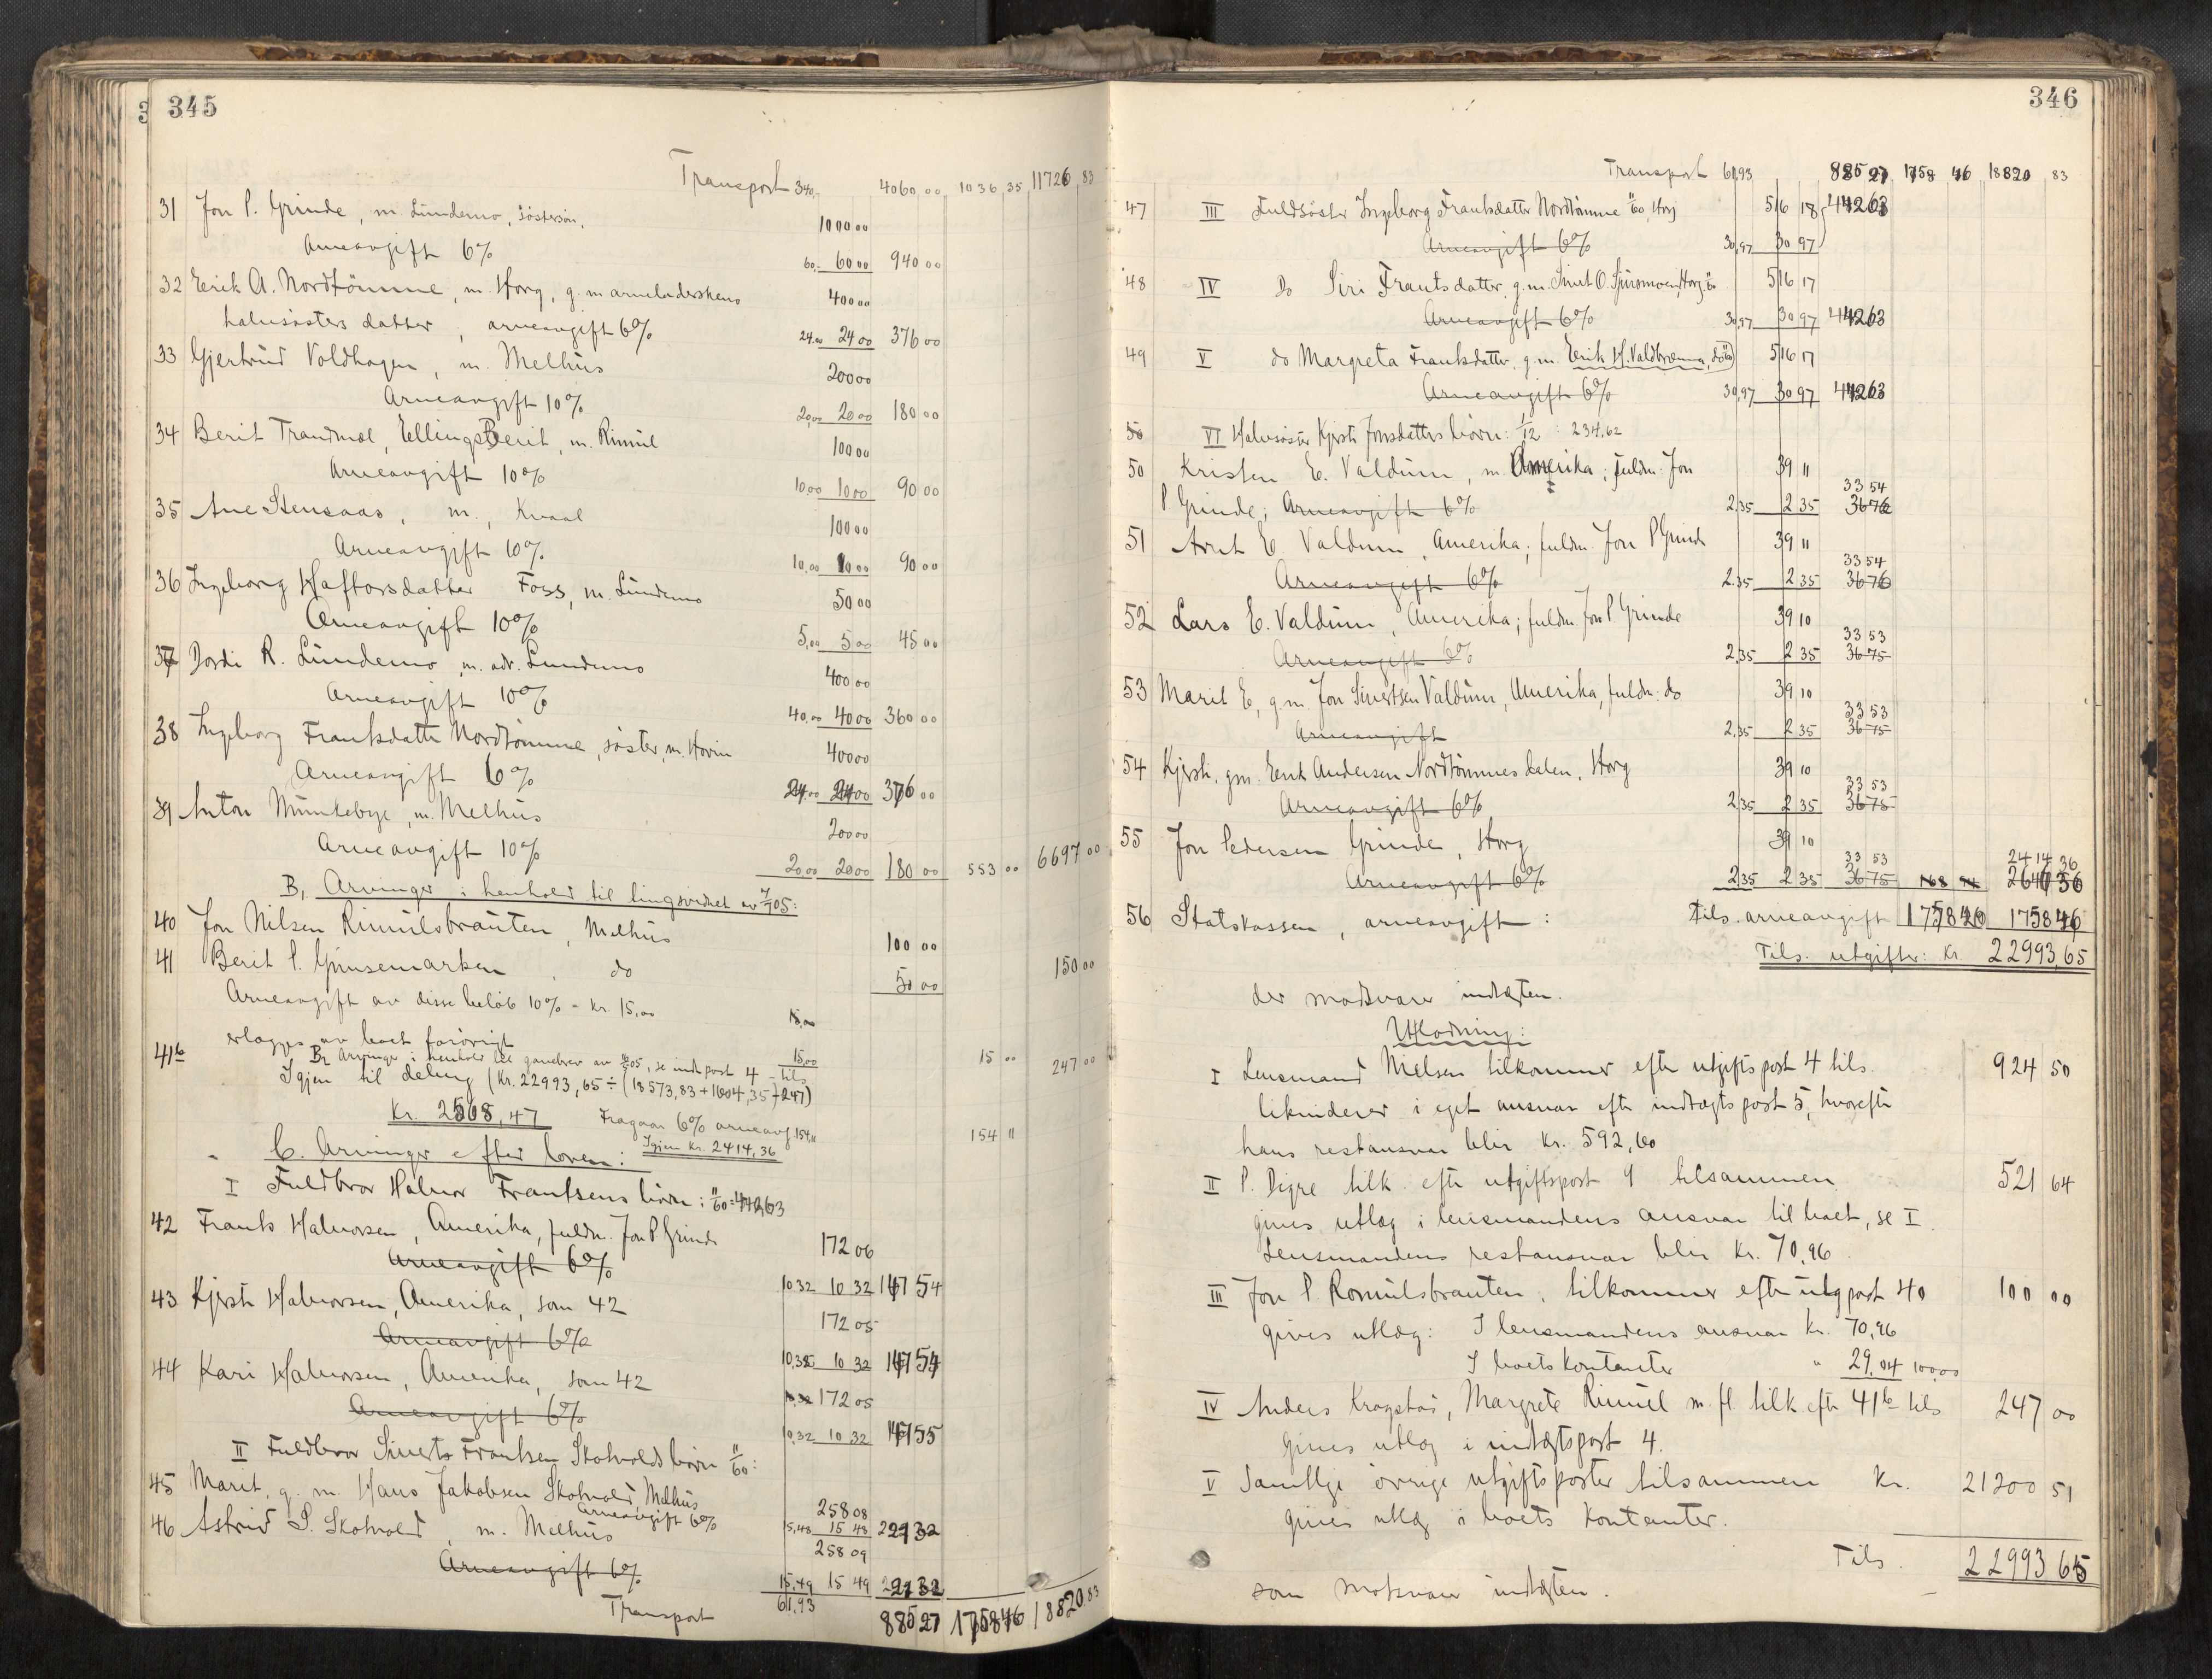 345
Transport 340,- 4060 00 1036 35 11726 83
31 Jon P. Grinde, m. Lundemo, søstersøn, 1000 00
Arveavgift 6% 60,- 60 00 940 00
32 Erik A. Nordtømme, m. Horg, g. m. arveladerskens 400 00
halvsøsters datter, arveavgift 6% 24.00 24 00 376 00
33 Gjertrud Voldhagen, m. Melhus 200 00
Arveavgift 10% 20,00 20 00 180 00
34 Berit Trandmæl, EllingsBerit, m. Rimul 100 00
Arveavgift 10% 10 00 10 00 90 00
35 Ane Stensaas, m., Kvaal 100 00
Arveavgift 10% 10,00 10 00 90 00
36 Ingeborg Haftorsdatter Foss, m. Lundemo 50 00
Arveavgift 10% 5,00 5 00 45 00
37 Dordi R. Lundemo, m. adr. Lundemo 400 00
Arveavgift 10% 40,00 40 00 360 00
38 Ingeborg Frantsdatter Nordtømme, søster, m. Hovin 400 00
Arveavgift 6% 24,00 24 00 376 00
39 Anton Munkebye, m. Melhus 200 00
Arveavgift 10% 20 00 20 00 180 00 553 00 6697 00
B, Arvinger i henhold til tingsvidnet av 7/7 05:
40 Jon Nilsen Rimulsbrauten, Melhus 100 00
41 Berit P. Gimsemarken, do 50 00 150 00
Arveavgift av disse beløb 10% = kr. 15,00 15,00
erlægges av boet forøvrigt 15,00 15 00
41b B2 Arvinger i henhold til gavebrev av 05, se indt post 4 - tils 247 00
Igjen til deling (Kr. 22993,65 ÷ (18573,83 + 1604,35 + 247)
Kr. 2568,47 Fragaar 6% arveavg. 154,11 154 11
Igjen Kr. 2414,36
C. Arvinger efter loven:
I Fuldbror Halvor Frantsens børn: 11/60 = 442,63
42 Frants Halvorsen, Amerika, fuldm. Jon P Grinde 172 06
Arveavgift 6% 10 32 10 32 147 54
43 Kjersti Halvorsen, Amerika, som 42 172 05
Arveavgift 6% 10,32 10 32 147 54
44 Kari Halvorsen, Amerika, som 42 10,32 172 05
Arveavgift 6% 10,32 10 32 147 55
II Fuldbror Siverts Frantsen Skotvolds børn 11/60:
45 Marit, g. m. Hans Jakobsen Skotvold, Melhus 258 08
Arveavgift 6% 15,48 15 48 221 32
46 Astrid S. Skotvold, m. Melhus 258 09
Arveavgift 6% 15,49 15 49 221 32
Transport 61,93 885 27 1758 46 18820 83
346
Transport 61,93 885 27 1758 46 18820 83
47 III Fuldsøster Ingeborg Frantsdatter Nordtømme 11/60, Horg 516 18 442 63
Arveavgift 6% 30,97 30 97
48 IV Do Siri Frantsdatter, g. m. Sivert O. Spjeldmoen, Horg 11/60 516 17
Arveavgift 6% 30,97 30 97 442 63
49 V do Margreta Frantsdatter, g. m. Erik H. Valdbrænna, do 11/60 516 17
Arveavgift 6% 30,97 30 97 442 63
50 VI Halvsøster Kjersti Jonsdatters børn: 1/12 = 234,62
50 Kristen E. Valdum, m. Amerika; fuldm. Jon 39 11 33 54
P Grinde, Arveavgift 6% 2,35 2 35 36 76
51 Arnt E. Valdum, Amerika; fuldm. Jon P Grinde 39 11 33 54
Arveavgift 6% 2,35 2 35 36 76
52 Lars E. Valdum, Amerika; fuldm. Jon P. Grinde 39 10 33 53
Arveavgift 6% 2,35 2 35 36 75
53 Marit E, g m Jon Sivertsen Valdum, Amerika, fuldm. do 39,10 33 53
Arveavgift 2,35 2 35 36 75
54 Kjersti, gm. Erik Andersen Nordtømmesdalen, Horg 39 10 33 53
Arveavgift 6% 2,35 2 35 36 75
55 Jon Pedersen Grinde, Horg 39 10 33 53 2414 36
Arveavgift 6% 2,35 2 35 36 75 168 94
56 Statskassen, arveavgift: Tils. arveavgift 1758 46 1758 46
Tils. utgifter: Kr. 22993,65
der modsvarer indtægten.
Utlodning:
I Lensmand Nielsen tilkommer efter utgiftspost 4 tils. 924 50
likviderer i eget ansvar efter indtægtspost 5, hvorefter
hans restansvar blir kr. 592,60
II P. Digre tilk. efter utgiftspost 9 tilsammen 521 64
gives utlæg i lensmandens ansvar til boet, se I.
Lensmandens restansvar blir kr. 70,96
III Jon P. Romulsbrauten, tilkommer efter utg post 40 100 00
gives utlæg: I lensmandens ansvar Kr. 70,96
I boets kontanter " 29,04 100,00
IV Anders Krogstad, Margrete Rimul m. fl. tilk. efter 41b tils 247 00
gives utlæg i indtægtspost 4.
V Samtlige øvrige utgiftsposter tilsammen Kr. 21200 51
gives utlæg i boets Kontanter.
Tils. 22993 65
som motsvarer indtægten.